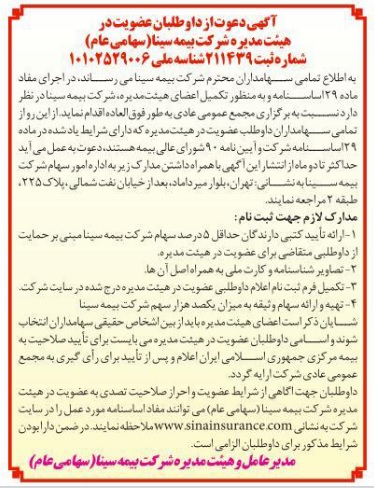 آگهی دعوت از داوطلبان عضویت در
هیئت مدیره شرکت بیمه سینا (سهامی عام)
شماره ثبت ۲۱۱۴۳۹ شناسه ملی ۱۰۱۰۲۵۲۹۰۰۶
به اطلاع تمامی سهامداران محترم شرکت بیمه سینا می رساند، در اجرای مفاد
ماده ۲۹ اساسنامه و به منظور تکمیل اعضای هیئت مدیره، شرکت بیمه سینا در نظر
دارد نسبت به برگزاری مجمع عمومی عادی به طور فوق العاده اقدام نماید. از این رو از
تمامی سهامداران داوطلب عضویت در هیئت مدیره که دارای شرایط یاد شده در ماده
۲۹ اساسنامه شرکت و آیین نامه ۹۰ شورای عالی بیمه هستند، دعوت به عمل می آید
حداکثر تا دو ماه از انتشار این آگهی با همراه داشتن مدارک زیر به اداره امور سهام شرکت
بیمه سینا به نشانی: تهران، بلوار میرداماد، بعد از خیابان نفت شمالی، پلاک ۲۲۵،
طبقه ۲ مراجعه نمایند.
مدارک لازم جهت ثبت نام :
۱- ارائه تأیید کتبی دارندگان حداقل ۵ درصد سهام شرکت بیمه سینا مبنی بر حمایت
از داوطلبی متقاضی برای عضویت در هیئت مدیره.
۲- تصاویر شناسنامه و کارت ملی به همراه اصل آن ها.
۳- تکمیل فرم ثبت نام اعلام داوطلبی عضویت در هیئت مدیره درج شده در سایت شرکت.
۴- تهیه و ارائه سهام وثیقه به میزان یکصد هزار سهم شرکت بیمه سینا
شایان ذکر است اعضای هیئت مدیره باید از بین اشخاص حقیقی سهامداران انتخاب
شوند و اسامی داوطلبان عضویت در هیئت مدیره می بایست برای تأیید صلاحیت به
بیمه مرکزی جمهوری اسلامی ایران اعلام و پس از تأیید برای رأی گیری به مجمع
عمومی عادی شرکت ارایه گردد.
داوطلبان جهت آگاهی از شرایط عضویت و احراز صلاحیت تصدی به عضویت در هیئت
مدیره شرکت بیمه سینا (سهامی عام) می توانند مفاد اساسنامه مورد عمل را در سایت
شرکت به نشانی www.sinainsurance.com ملاحظه نمایند. در ضمن دارا بودن
شرایط مذکور برای داوطلبان الزامی است.
مدیر عامل و هیئت مدیره شرکت بیمه سینا (سهامی عام)